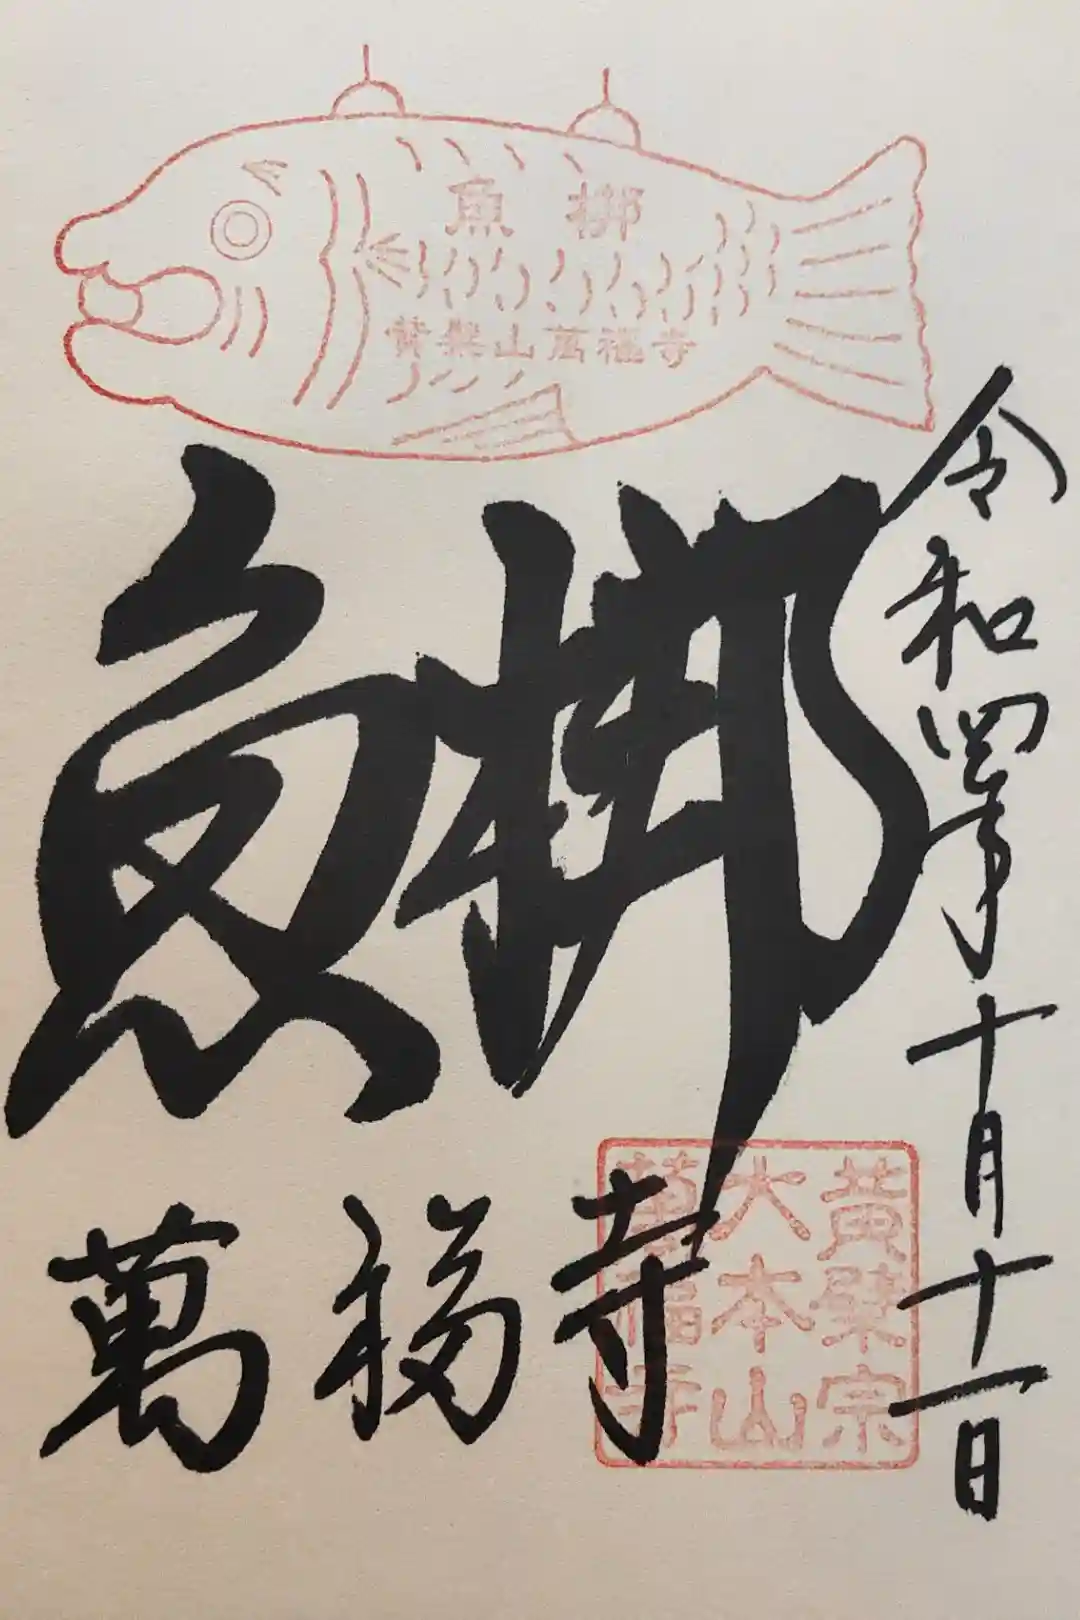 魚梆
黄檗山萬福寺
令和四年十月十一日
魚梆
萬福寺
黄檗宗
大本山
萬福寺